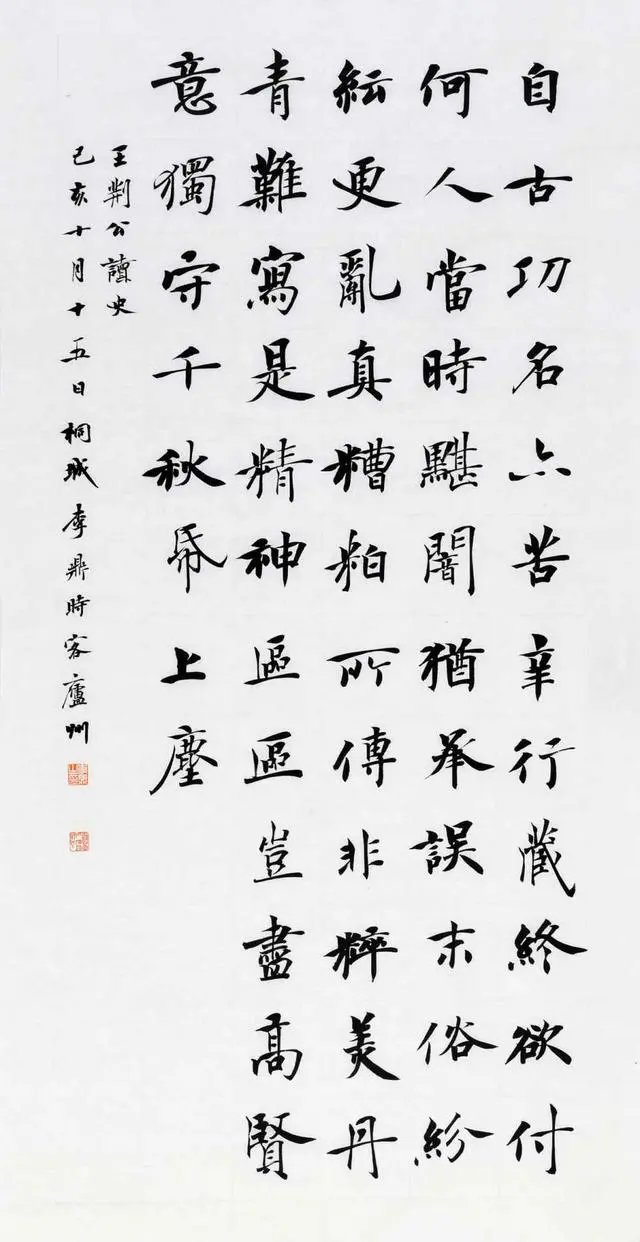 自古功名亦苦辛行藏終欲付
何人當時黮闇猶承誤末俗紛
紜更亂真糟粕所傳非粹美丹
青難寫是精神區區豈盡高賢
意獨守千秋帋上塵
王荆公讀史
己亥十月十五日桐城李鼎時客廬州